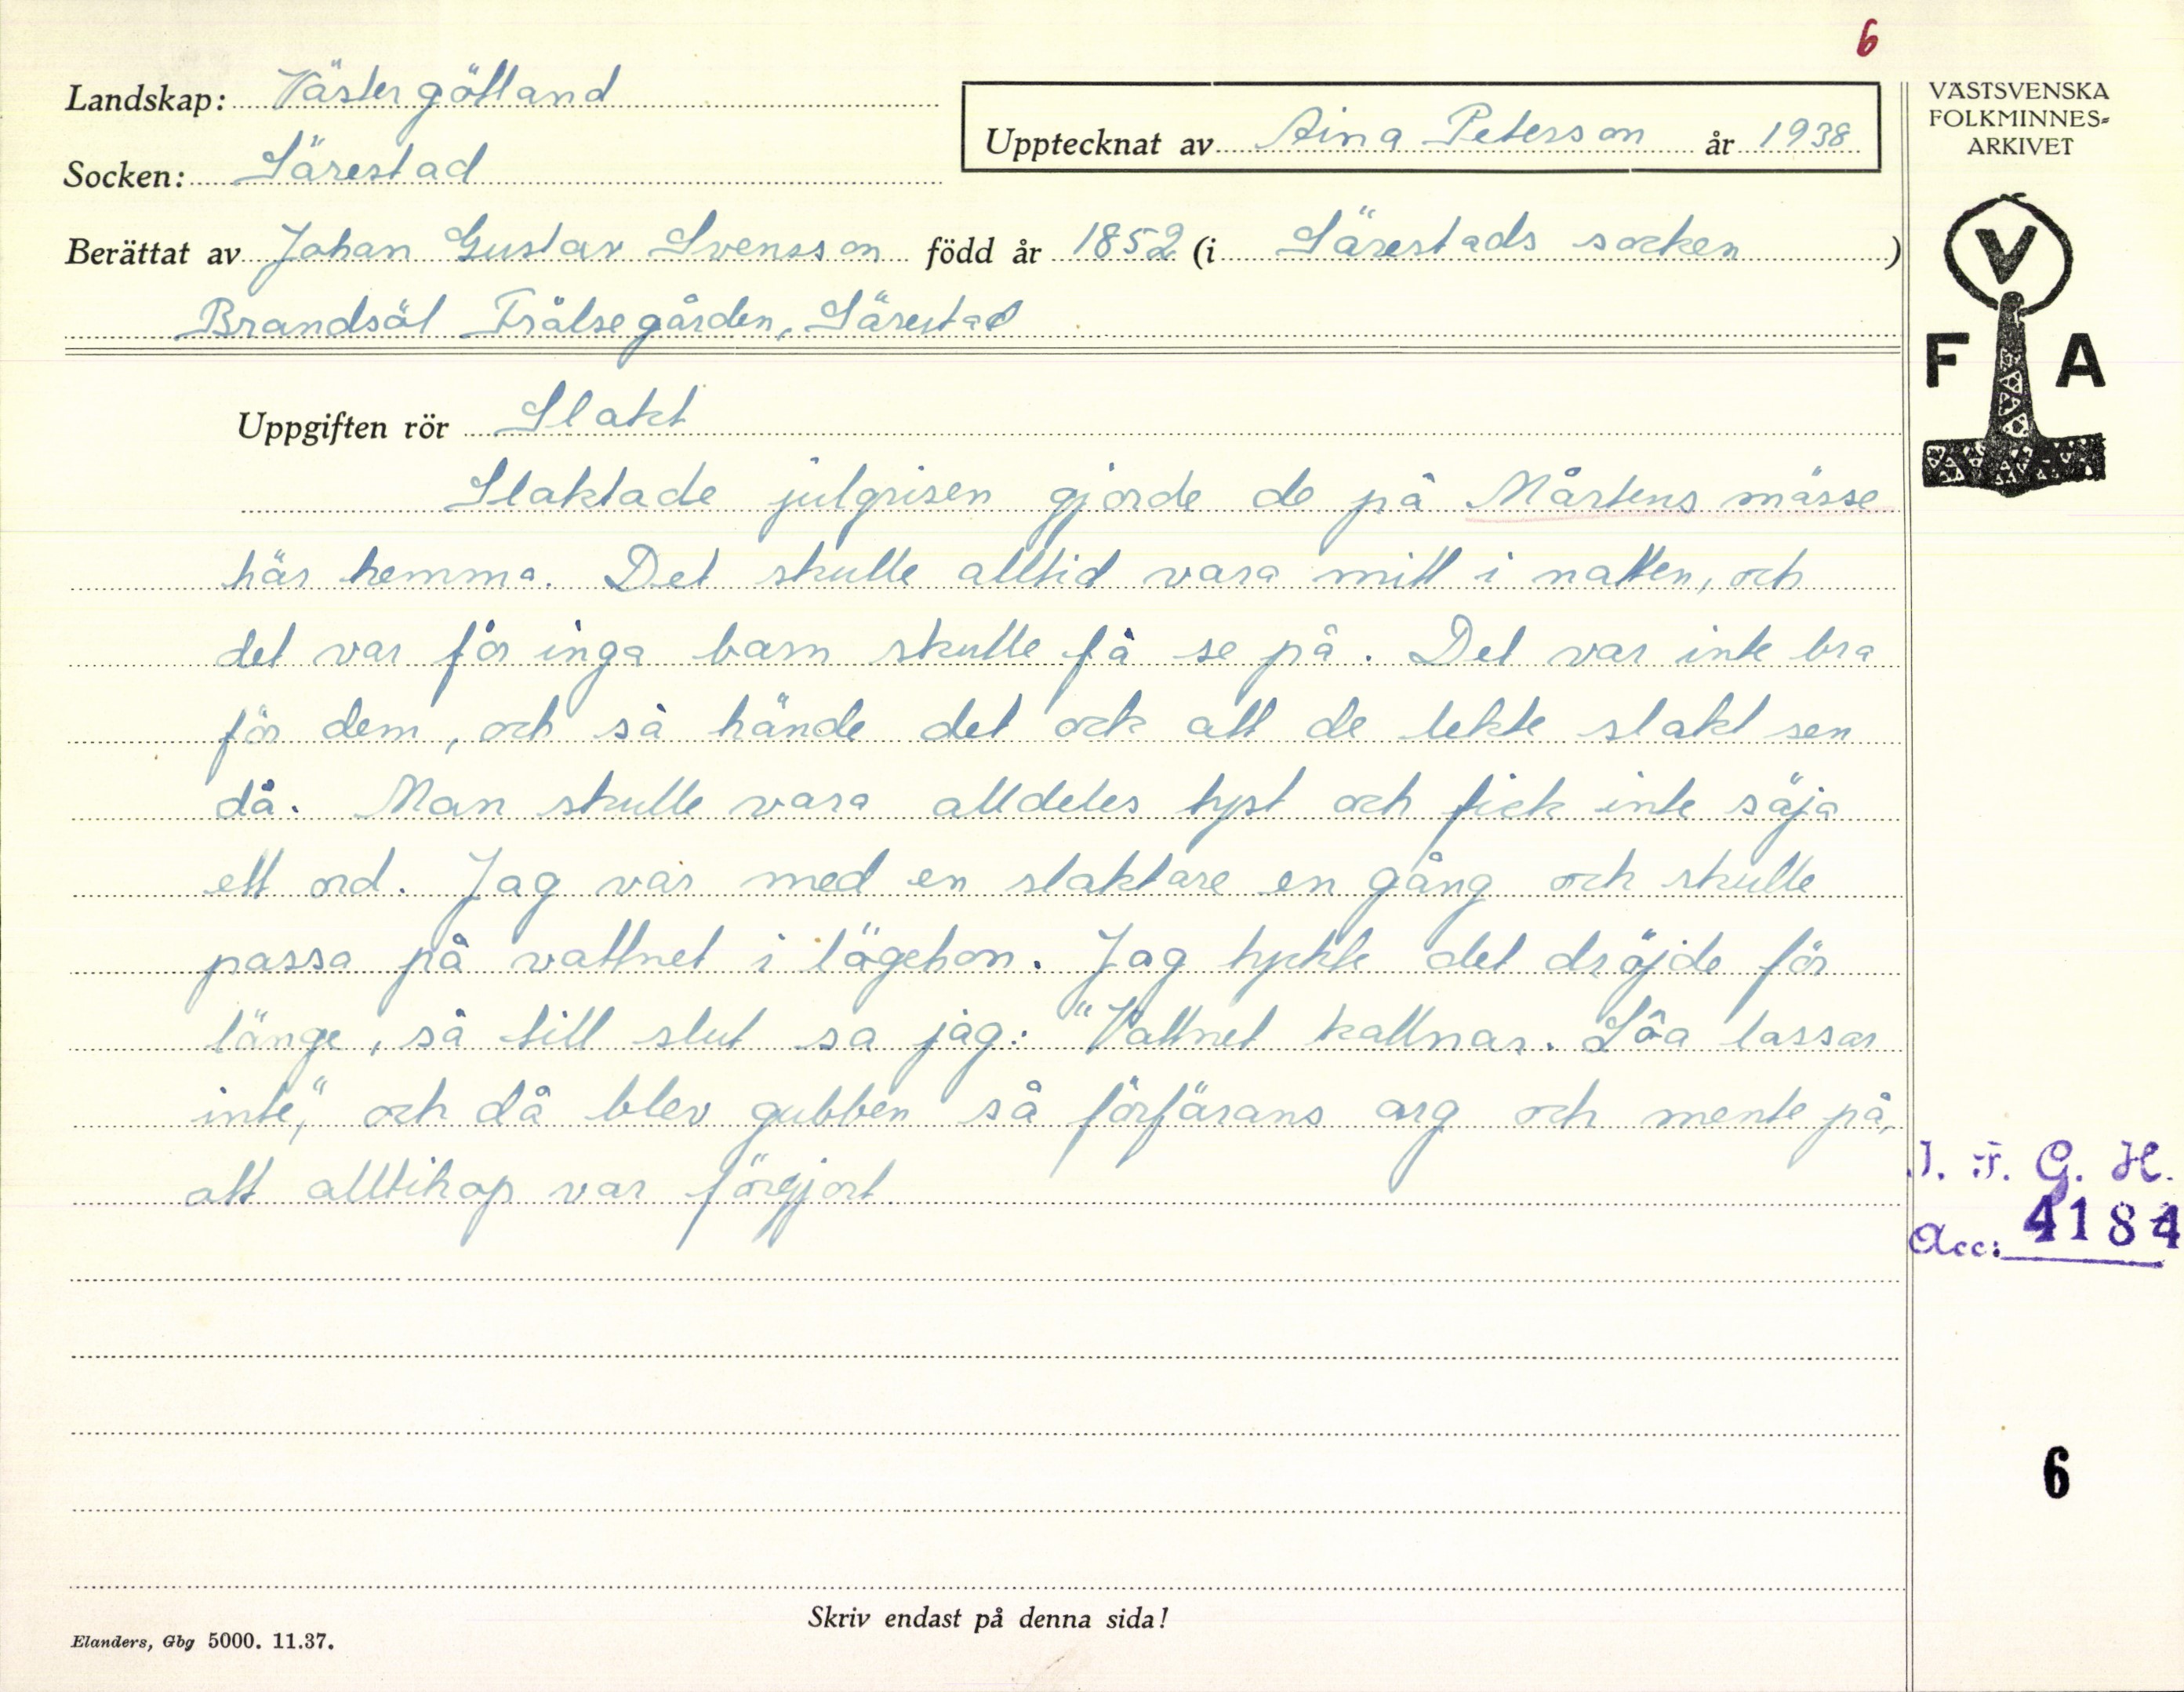 6
Landskap: Västergötland
Socken: Särestad
Upptecknat av Aina Peterson år 1938
Berättat av Johan Gustav Svensson född år 1852 (i Särestads socken )
Brandsäl Frälsegården, Särestad
VÄSTSVENSKA
FOLKMINNES-
ARKIVET
V
F A
Uppgiften rör Slakt
Slaktade julgrisen gjorde de på Mårtens mässe
här hemma. Det skulle alltid vara mitt i natten, och
det var för inga barn skulle få se på. Det var inte bra
för dem, och så hände det ock att de lekte slakt sen
då. Man skulle vara alldeles tyst och fick inte säja
ett ord. Jag var med en slaktare en gång och skulle
passa på vattnet i lögehon. Jag tyckte det dröjde för
länge, så till slut sa jag: "Vattnet kallnar. Söa lassar
inte", och då blev gubben så förfärans arg och mente på,
att alltihop var förgjort.
I. F. G. H.
Acc: 4184
6
Skriv endast på denna sida!
Elanders, Gbg 5000. 11.37.